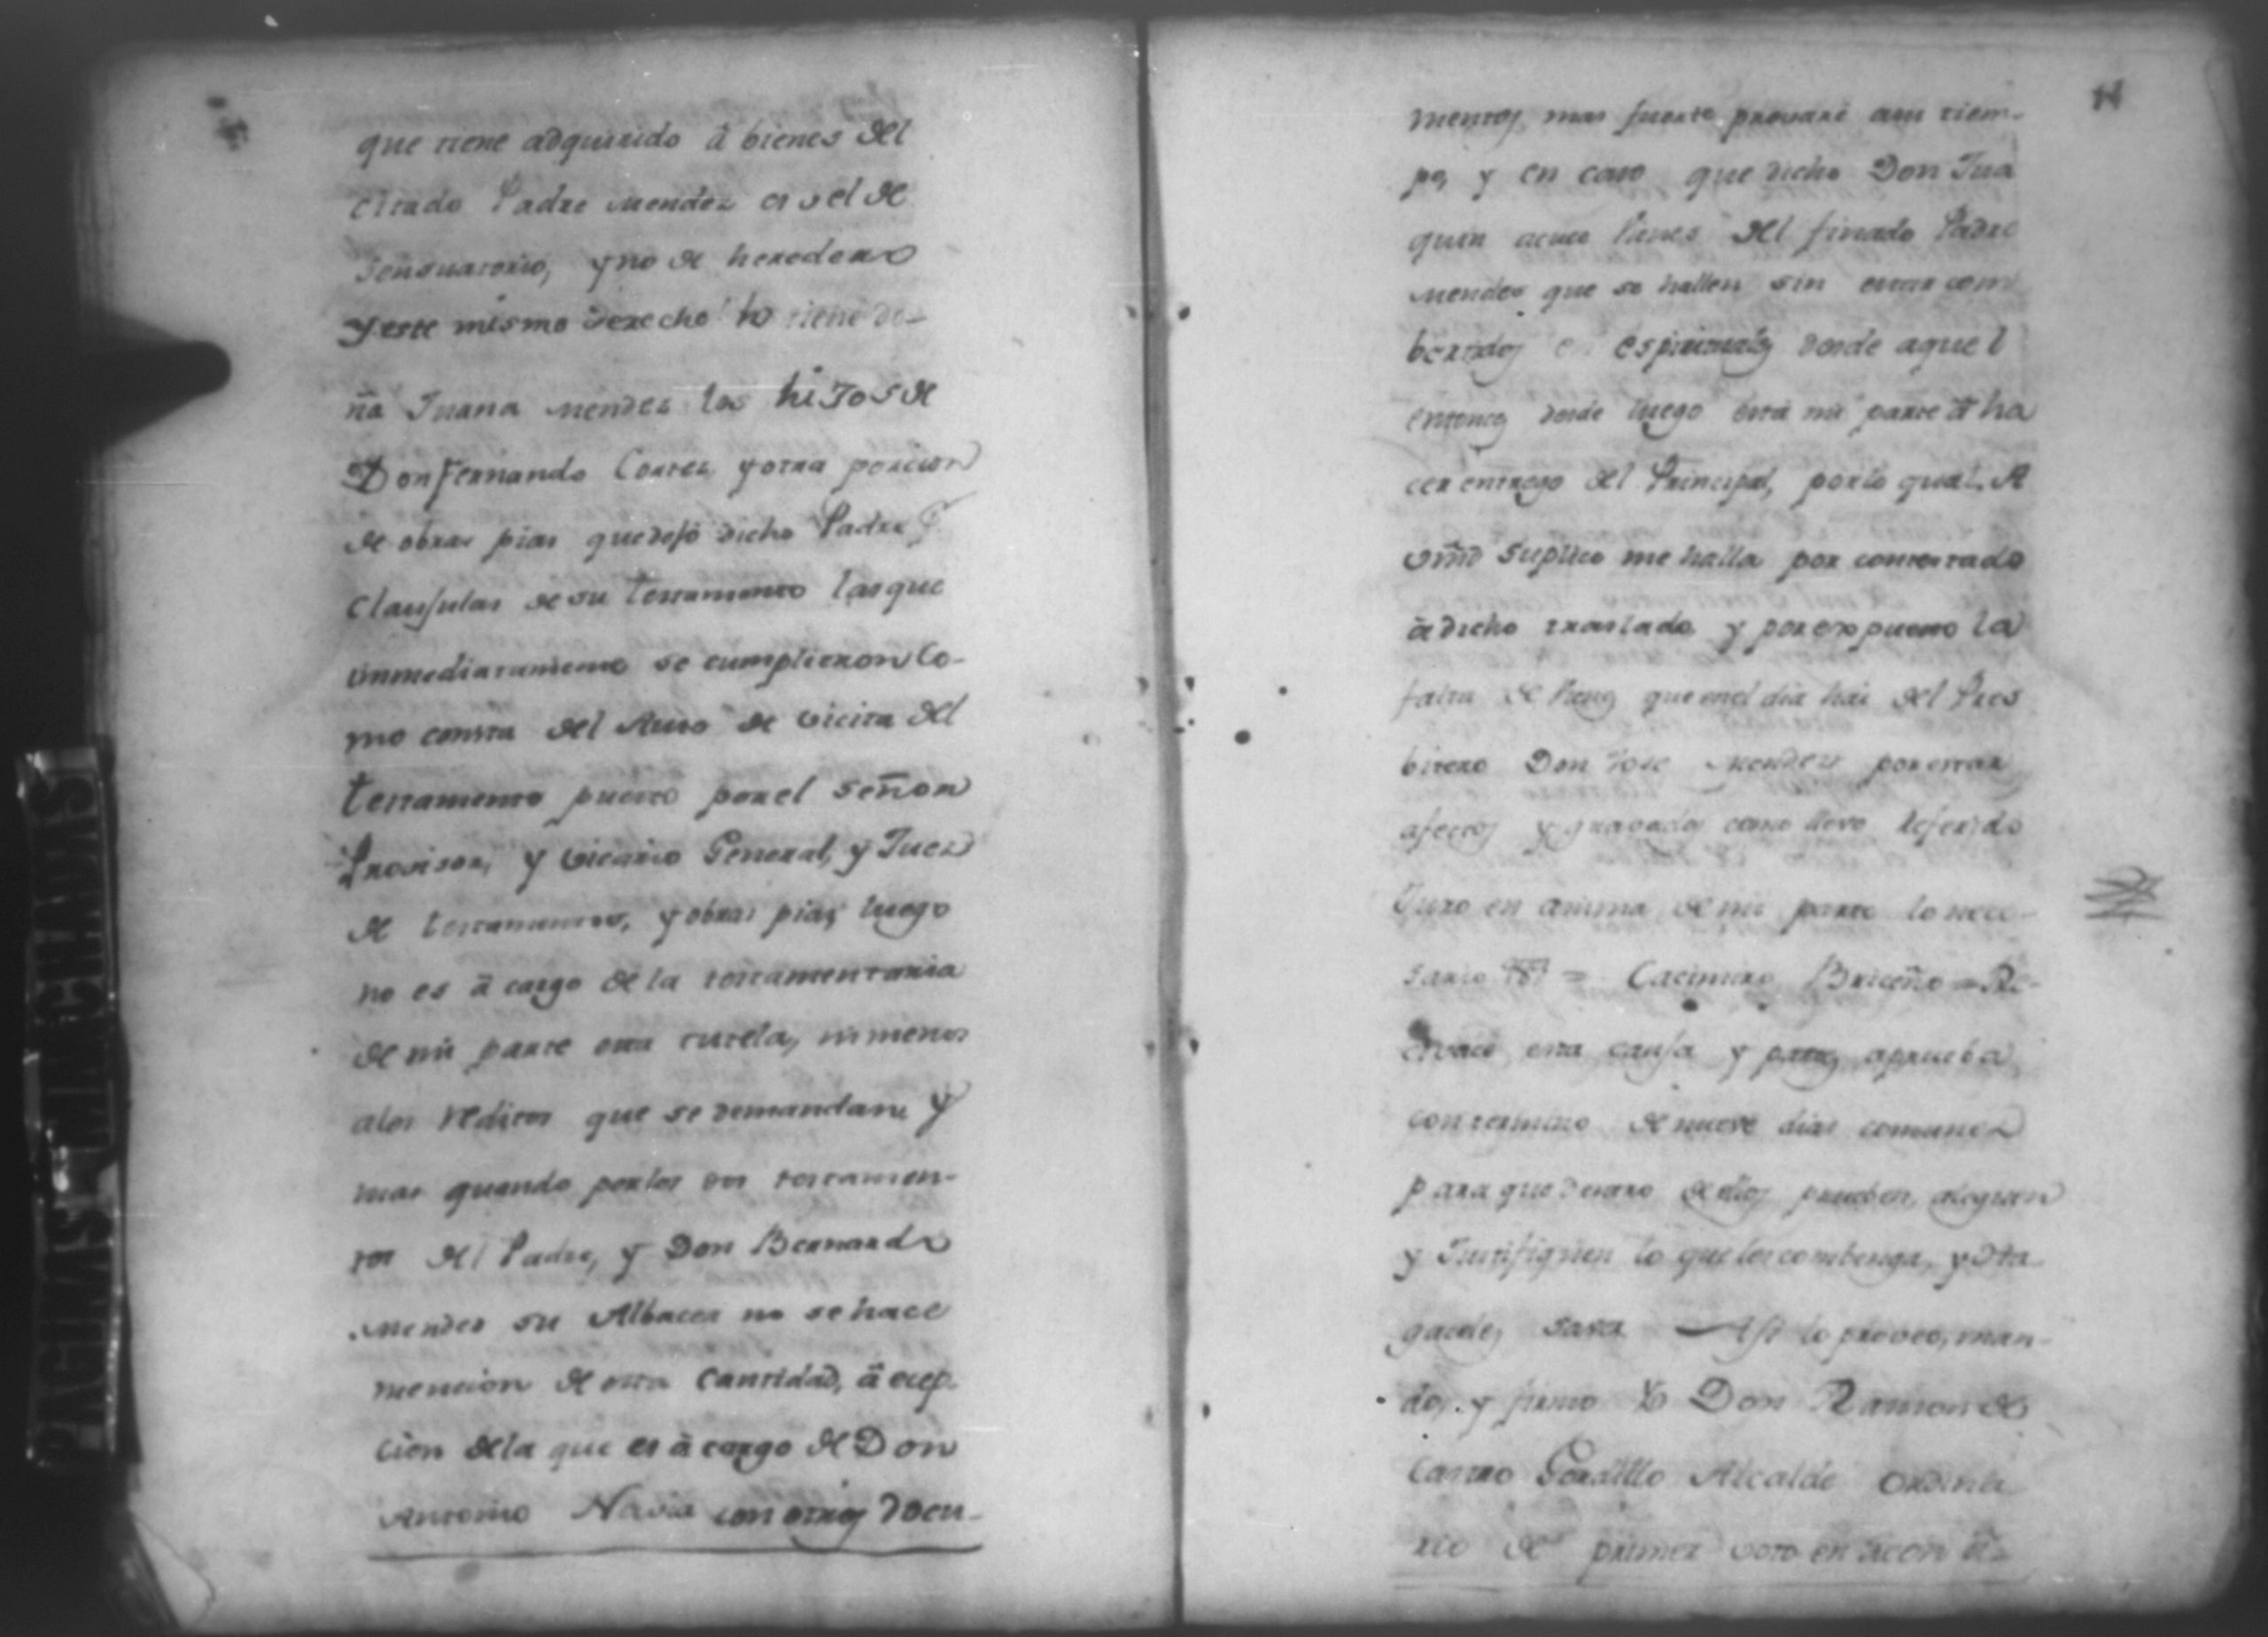 que tiene adquirido â bienes del
citado Padre Mendez es el de
Sensuatorio, y no de heredero
y este mismo derecho lo tiene do-
ña Juana Mendez los hijos de
Don Fernando Cortez y otra porcion
de obras pias que dejò dicho Padre
Clausulas de su testamento las que
immediatamente se cumplieron co-
mo consta del Auto de vicita del
testamento puesto por el señor
Provisor, y vicario General, y Juez
de testamentos, y obras pias, luego
no es â cargo de la testamentaria
de mi parte esta tutela, ni menos
a los reditos que se demandan y
mas quando por los dos testamen-
tos del Padre, y Don Bernardo
Mendez su Albacea no se hace
mencion de esta cantidad, â ecep-
cion de la que es â cargo de Don
Antonio Navia con otros docu-
mentos mas fuerte provaré a su tiem-
po, y en caso que dicho Don Jua
quin acuse bienes del finado Padre
Mendez que se hallen sin estar com
bertidos en espirituales desde aquel
entonces desde luego está mi parte â ha
cer entrego del Principal, por lo qual. A
vmd suplico me halla por contestado
â dicho traslado y por expuesto la
falta de bienes que en el dia hai del Pres
bitero Don Jose Mendez por estar
afectos y gravados como llevo referido
Juro en anima de mi parte lo nece-
sario = Cacimiro Briceño = Re-
civase esta causa y partes aprueba
con termino de nueve dias comunes
para que dentro de ellos prueben, aleguen
y Justifiquen lo que les combenga, y
Asi lo proveo, man-
do, y firmo Yo Don Ramon de
Castro Gordillo Alcalde ordina
rio de primer voto en